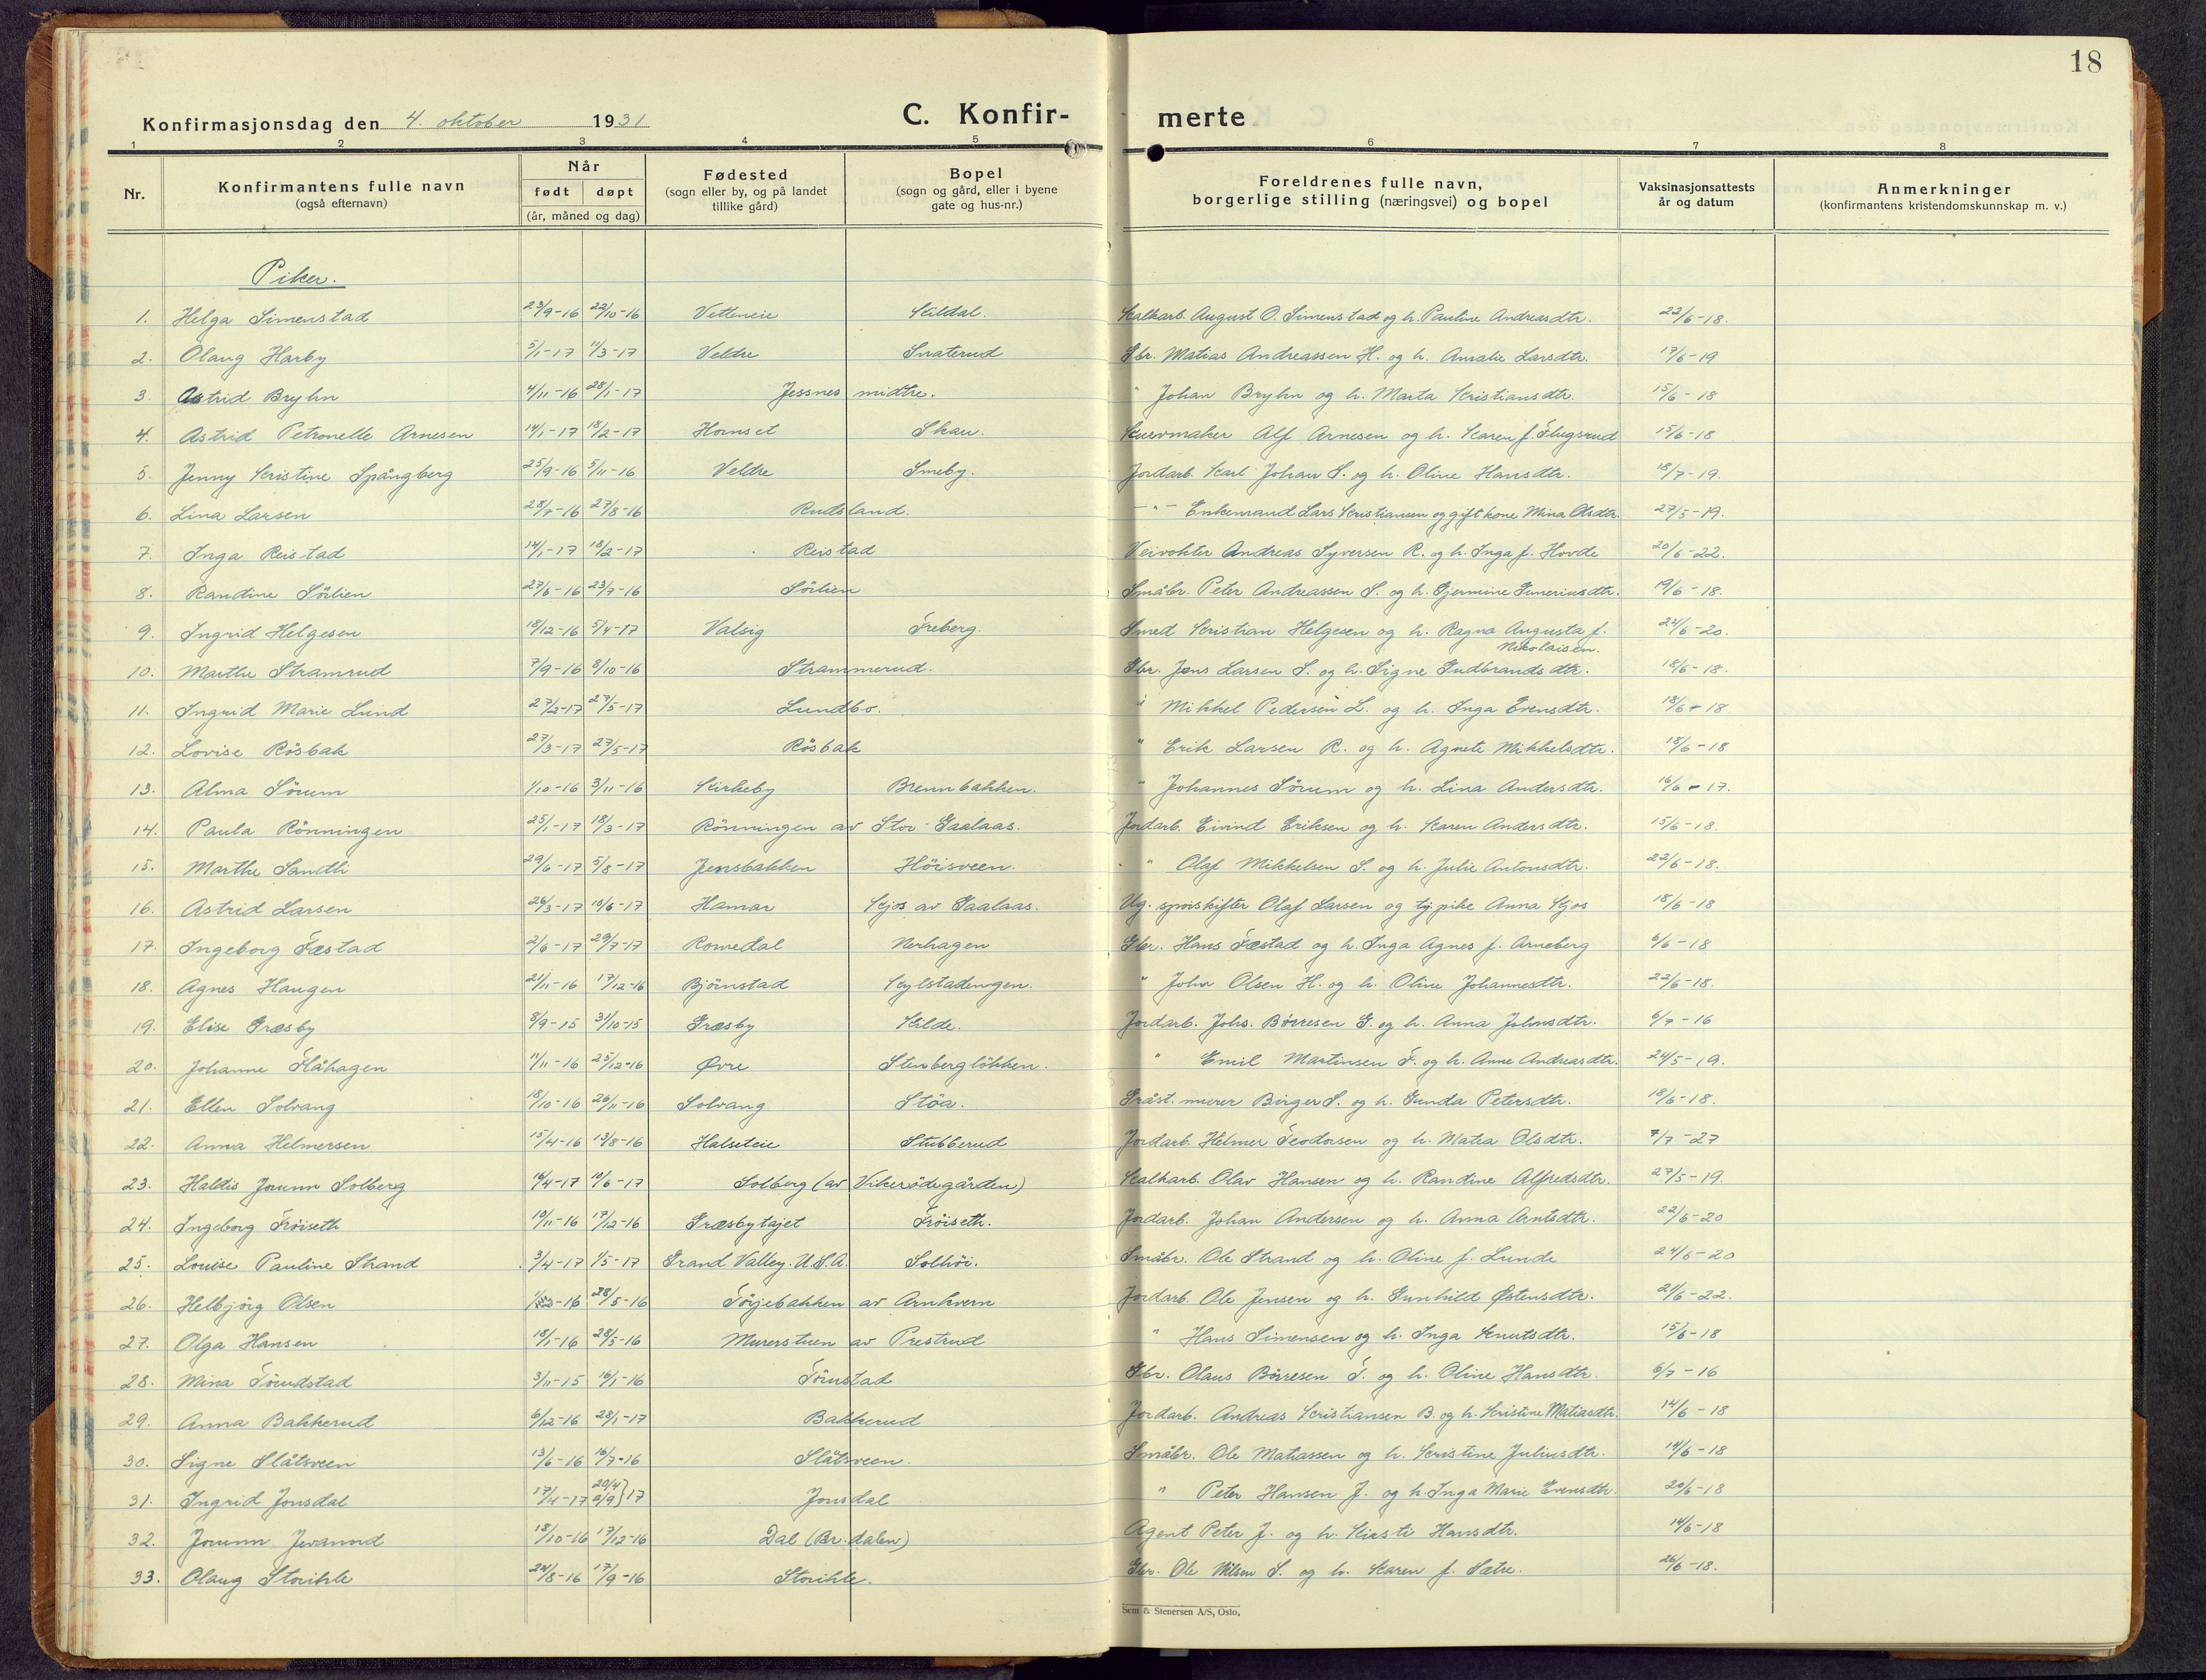 18
Konfirmasjonsdag den 4. oktober 1931 C. Konfir- merte
1 2 3 4 5 6 7 8
Nr. Konfirmantens fulle navn (også efternavn) Når født døpt (år, måned og dag) Fødested (sogn eller by, og på landet tillike gård) Bopel (sogn og gård, eller i byene gate og hus-nr.) Foreldrenes fulle navn, borgerlige stilling (næringsvei) og bopel Vaksinasjonsattests år og datum Anmerkninger (konfirmantens kristendomskunnskap m. v.)
Piker.
1. Helga Simenstad 23/9-16 22/10-16 Vetleneie Kildal. Kalkarb. August O. Simenstad og h. Pauline Andreasdtr. 22/6-18.
2. Olaug Harby 5/1-17 11/3-17 Veldre Snaterud Gbr. Matias Andreassen H. og h. Amalie Larsdtr. 17/6-19
3. Astrid Bryhn 4/11-16 28/1-17 Jessnes midtre. " Johan Bryhn og h. Marta Kristiansdtr. 15/6-18
4. Astrid Petronelle Arnesen 14/1-17 18/2-17 Hornset Skau. Kurvmaker Alf Arnesen og h. Karen f. Flugsrud 15/6-18
5. Jenny Kristine Spångberg 25/9-16 5/11-16 Veldre Smeby. Jordarb. Karl Johan S. og h. Oline Hansdtr. 18/7-19.
6. Lina Larsen 28/7-16 27/8-16 Rudsland. -"- Enkemand Lars Kristiansen og gift kone Mina Olsdtr. 27/5-19.
7. Inga Reistad 14/1-17 18/2-17 Reistad Veivokter Andreas Syversen R. og h. Inga f. Hovde 20/6-22.
8. Randine Sörlien 27/6-16 23/7-16 Sörlien Småbr. Peter Andreassen S. og h. Gjermine Guneriusdtr. 19/6-18.
9. Ingrid Helgesen 18/12-16 5/4-17 Valsig Freberg Smed Kristian Helgesen og h. Ragna Augusta f. Nikolaisen. 24/6-20.
10. Marthe Stramrud 7/9-16 8/10-16 Strammerud. Gbr. Jens Larsen S. og h. Signe Gudbrandsdtr. 18/6-18.
11. Ingrid Marie Lund 27/2-17 27/5-17 Lundbo. " Mikkel Pedersen L. og h. Inga Evensdtr. 18/6-18
12. Lovise Rösbak 27/3-17 27/5-17 Rösbak " Erik Larsen R. og h. Agnete Mikkelsdtr. 18/6-18
13. Alma Sörum 1/10-16 3/11-16 Kirkeby Brennbakken. " Johannes Sörum og h. Lina Andersdtr. 16/6-17.
14. Paula Rönningen 25/1-17 18/3-17 Rönningen av Stor-Gaalaas. Jordarb. Eivind Eriksen og h. Karen Andersdtr. 15/6-18.
15. Marthe Sandli 29/6-17 5/8-17 Jensbakken Höisveen. " Olaf Mikkelsen S. og h. Julie Antonsdtr. 22/6-18.
16. Astrid Larsen 26/3-17 10/6-17 Hamar Kjos av Gaalaas. Ug. sporskifter Olaf Larsen og tj. pike Anna Kjos 18/6-18
17. Ingeborg Fæstad 2/6-17 29/7-17 Romedal Nerhagen Gbr. Hans Fæstad og h. Inga Agnes f. Arneberg 6/6-18
18. Agnes Haugen 21/11-16 17/12-16 Björnstad Kylstadengen. " John Olsen H. og h. Oline Johannesdtr. 22/6-18.
19. Elise Græsby 8/9-15 31/10-15 Græsby Kilde. Jordarb. Johs. Börresen G. og h. Anna Johnsdtr. 6/7-16
20. Johanne Flåhagen 11/11-16 25/12-16 Øvre Stenberglökken. " Emil Martinsen F. og h. Anne Andreasdtr. 24/5-19.
21. Ellen Solvang 18/10-16 26/11-16 Solvang Stöa. Gråst. murer Birger S. og h. Gunda Petersdtr. 18/6-18.
22. Anna Helmersen 15/4-16 13/8-16 Halseteie Stubberud Jordarb. Helmer Teodorsen og h. Matea Olsdtr. 7/7-27
23. Haldis Jorunn Solberg 14/4-17 10/6-17 Solberg (av Vikerödegården) Kalkarb. Olav Hansen og h. Randine Alfredsdtr. 27/5-19.
24. Ingeborg Fröiseth 10/11-16 17/12-16 Græsbytajet Fröiseth. Jordarb. Johan Andersen og h. Anna Arntsdtr. 22/6-20
25. Louise Pauline Strand 3/4-17 1/5-17 Grand Valley. U.S.A. Solhöi. Småbr. Ole Strand og h. Oline f. Lunde 24/6-20
26. Helbjörg Olsen -16 28/5-16 Törjebakken av Arnkvern Jordarb. Ole Jensen og h. Gunhild Østensdtr. 21/6-22.
27. Olga Hansen 18/1-16 28/5-16 Murerstuen av Prestrud " Hans Simensen og h. Inga Knutsdtr. 15/6-18
28. Mina Törudstad 3/11-15 16/1-16 Törustad Gbr. Olaus Börresen T. og h. Oline Hansdtr. 6/7-16
29. Anna Bakkerud 6/12-16 28/1-17 Bakkerud Jordarb. Andreas Kristiansen B. og h. Kristine Matiasdtr. 14/6-18
30. Signe Slåtsveen 13/6-16 16/7-16 Slåtsveen. Småbr. Ole Matiassen og h. Kristine Juliusdtr. 14/6-18
31. Ingrid Jonsdal 17/4-17 20/4 2/9}17 Jonsdal " Peter Hansen J. og h. Inga Marie Evensdtr. 20/6-18
32. Jorunn Jevanord 18/10-16 17/12-16 Dal (Br.dalen) Agent Peter J. og h. Kirsti Hansdtr. 14/6-18
33. Olaug Storihle 24/8-16 17/9-16 Storihle. Gbr. Ole Nilsen S. og h. Karen f. Sætre. 26/6-18.
Sem & Stenersen A/S, Oslo.